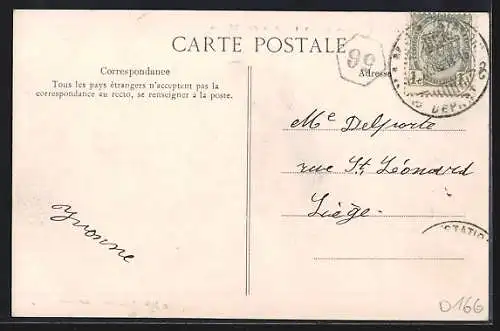 CARTE POSTALE
Correspondance
Tous les pays étrangers n'acceptent pas la
correspondance au recto, se renseigner à la poste.
Adresse
99
1c
DEPART
Me Delporte
rue St Léonard
Liège
Yvonne
STATIO
D166